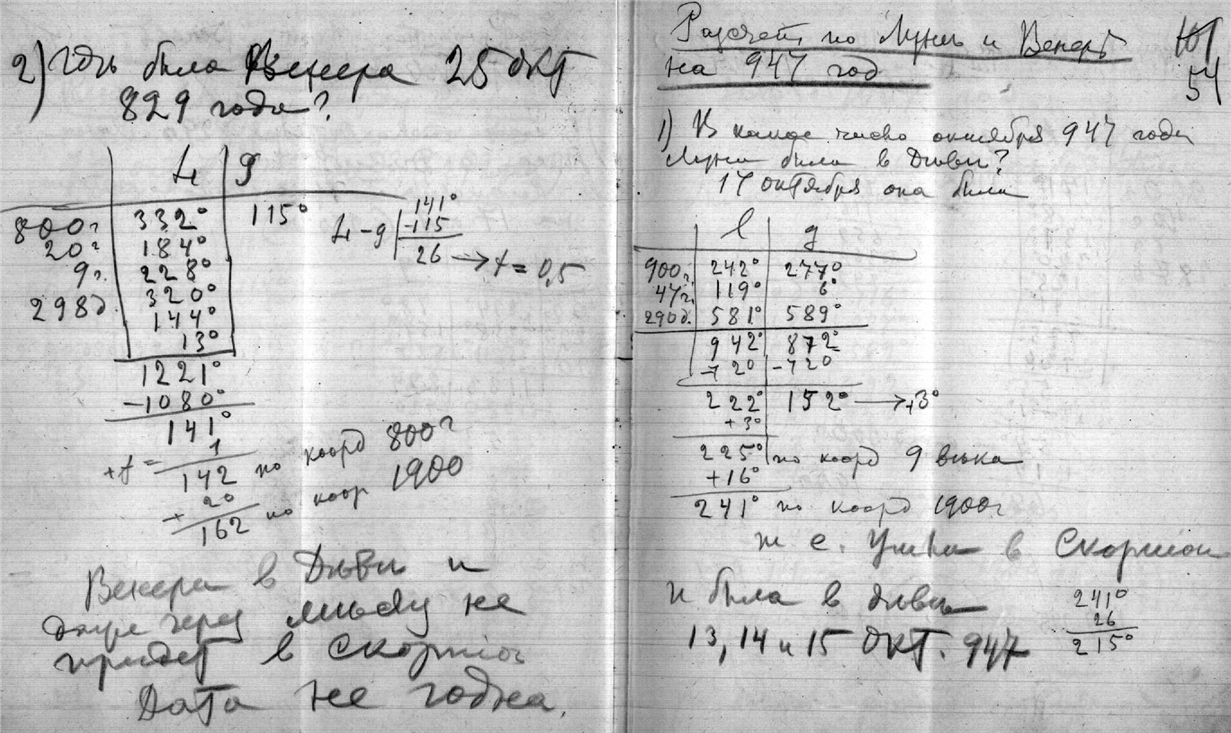 2) Где была Венера 25 окт
829 года?
L g
800г 332° 115°
20г 184°
9г. 228°
298д. 320°
144°
13°
1221°
-1080°
141°
L-g 141°
-115
26 → f = 0,5
+f = 1
142 по коорд 800г
+ 20
162 по коор 1900
Венера в Деви и
даже через месяц не
придет в Скорпион
Дата не годна.
Расчет по Луне и Венере
на 947 год
54
1) В какое число октября 947 года
Луна была в Деви?
17 октября она была
l g
900г. 242° 277°
47г. 119° 6°
290д. 581° 589°
942° 872°
-720 -720
222° 152° → +3°
+3°
225° по коорд 9 века
+16°
241° по коорд 1900г
т е. в Скорпион
и была в деви
13, 14 и 15 окт. 947
241°
26
215°